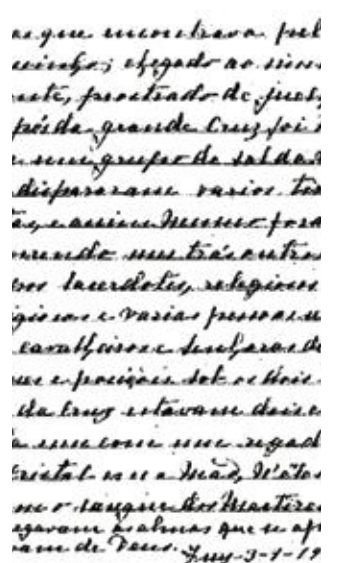 es que encontrava pel
minho; chegado ao cimo
nte, prostrado de juel
pés da grande Cruz foi m
r um grupo de soldad
dispararam varios tir
as, e assim mesmo fora
rrendo uns trás outros
pos Sacerdotes, religiosos
giosas e varias pessoas s
cavalheiros e senhoras de
ses e posições. Sob os dois
da Cruz estavam dois A
a um com um regad
cristal em a mão, n'êles
am o sangue dos Martires
egavam as almas que se apr
vam de Deus. Tuy-3-1-19